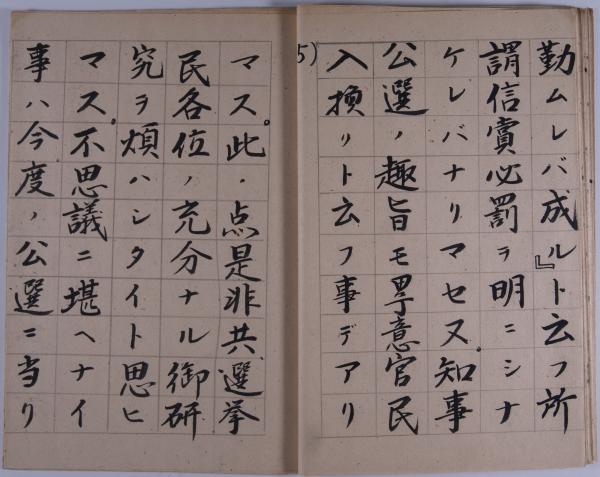 勤ムレバ成ル』ト云フ所
謂信賞必罰ヲ明ニシナ
ケレバナリマセヌ。知事
公選ノ趣旨モ畢意官民
入換リト云フ事デアリ
5)
マス。此ノ点是非共選挙
民各位ノ充分ナル御研
究ヲ煩ハシタイト思ヒ
マス。不思議ニ堪ヘナイ
事ハ今度ノ公選ニ当リ